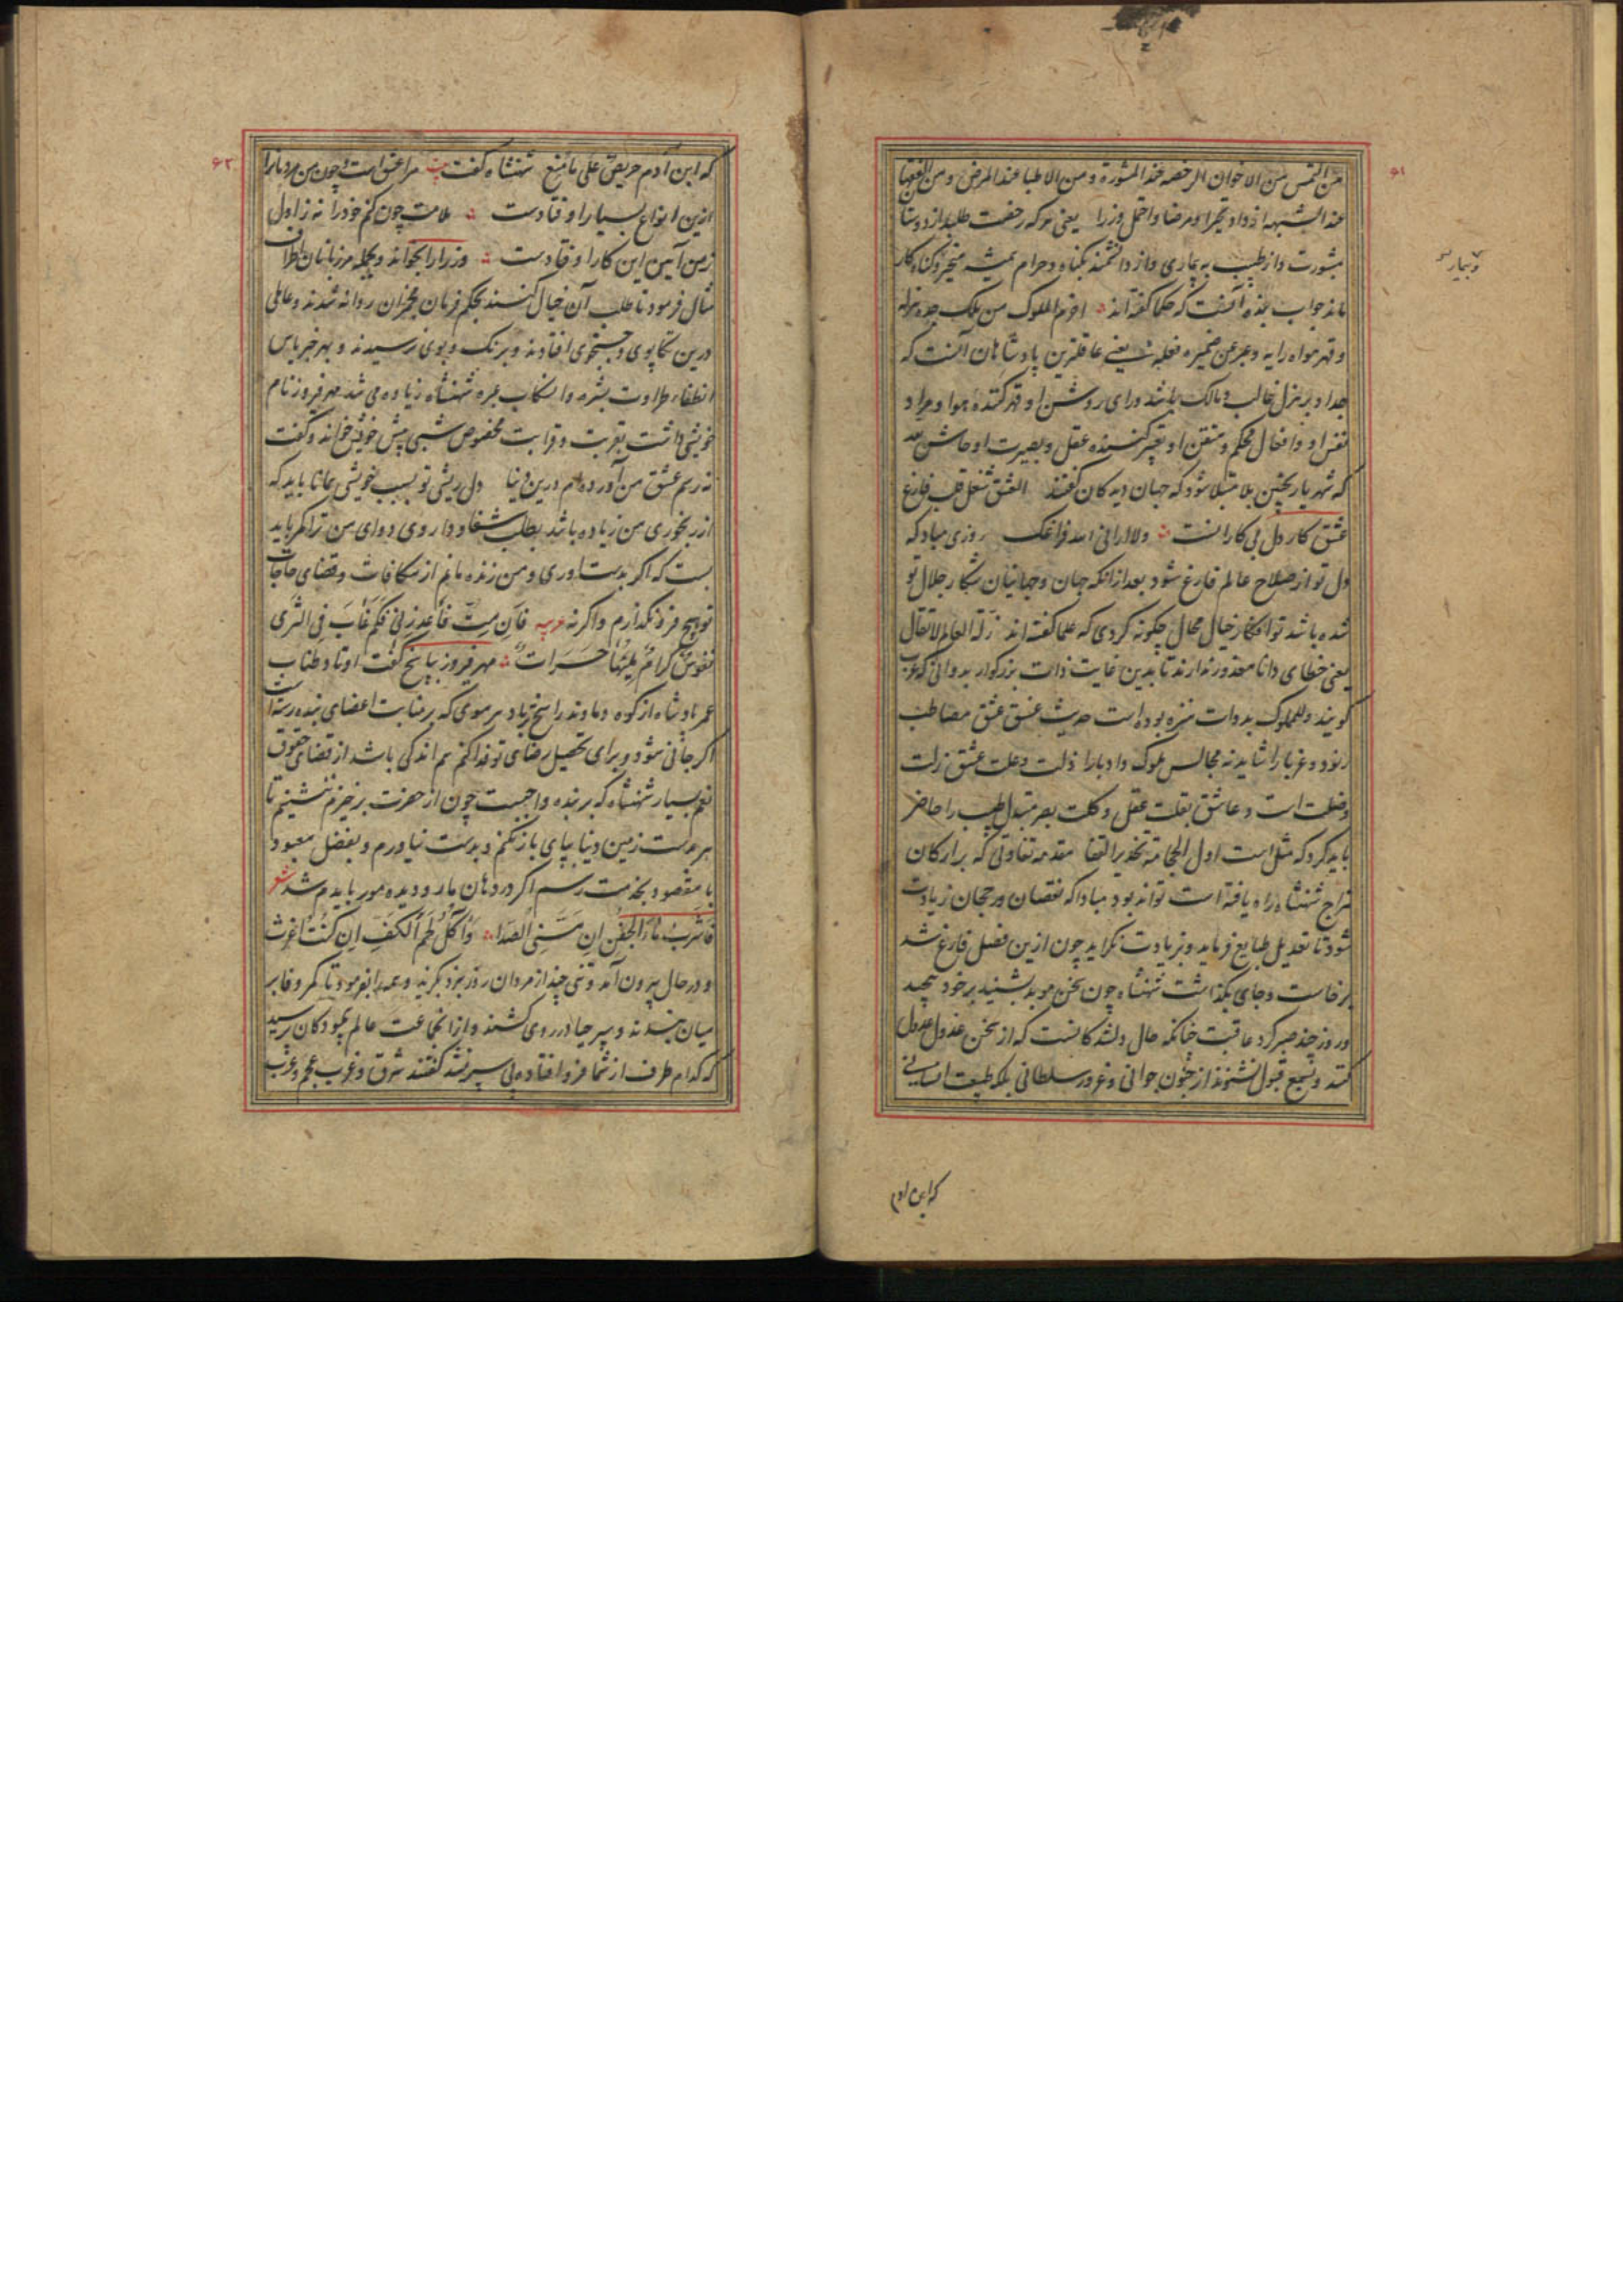 ۶۱
من التمس من الاخوان الرخصه عند المشورة و من الاطبا عند المرض و من الفقها
عند الشبهه ازداد تحیرا و مرضا و احتمل وزرا یعنی هر که رخصت طلبد از دوستان
بمشورت و از طبیب به بیماری و از دانشمند بگناه و حرام همیشه متحیر و گناه کار
و بیمار
ماند جواب بنده آنست که حکما گفته اند احزم الملوک من ملک جده هزله
و قهر هواه رایه و عبر عن ضمیره فعله یعنی عاقلترین پادشاهان آنست که
جد او بر هزل غالب و مالک باشد و رای روشن او قهر کننده هوا و مراد
نفس او و افعال محکم و متقن او تعبیر کننده عقل و بصیرت او حاش لله
که شهریار بچنین بلا مبتلا شود که جهان دیدگان گفتند العشق شغل قلب فارغ
عشق کار دل بی کارانست ولا ارانی الله فراغک روزی مباد که
دل تو از صلاح عالم فارغ شود بعد از آنکه جهان و جهانیان شکار جلال تو
شده باشد تو افکار خیال محال چگونه کردی که علما گفته اند زلة العالم لا تقال
یعنی خطای دانا معذور ندارند تا بدین غایت ذات بزرگوار
گویند و للملوک بدوات منزه بوده است حدیث عشق عشق مصاطب
رنود و غربا را شاید نه مجالس ملوک و ادبا را ذلت و علت عشق زلت
و ضلت است و عاشق بقلت عقل و کلت بصر مبتدل طبیب را حاضر
باید کرد که مثل است اول الحجامة تحذیر القفا مقدمه تفاوتی که بر ارکان
مزاج شهنشاه راه یافته است تواند بود مبادا که نقصان و رجحان زیادت
شود تا تعدیل طبایع فرماید و بزیادت نگراید چون ازین فصل فارغ شد
برخاست و جای بگذاشت شهنشاه چون سخن موبد بشنید بر خود پیچید
و روز چند صبر کرد عاقبت چنانکه حال دلشدگانست که از سخن عذول عدول
کنند و بسمع قبول نشنوند از جنون جوانی و غرور سلطانی بلکه طبیعت انسانی
که ابن آدم
۶۲
که ابن آدم حریص علی ما منع شهنشاه گفت بیت مرا عشق است چون من مردمانرا
ازین انواع بسیار اوفتادست ملامت چون کنم خود را نه ز اول
ز من آیین این کار اوفتادست وزرا را بخواند و بجمله مرزبانان اطراف
مثال فرمود تا طلب آن خیال کنند بحکم فرمان مخبران روانه شدند و عالمی
درین تکاپوی و جستجوی افتادند و برنگ و بوی نرسیدند و بهر خبر یاس
انطفاء طراوت بشره و انسکاب عبره شهنشاه زیاده می شد مهر فیروز نام
خویشی داشت بقربت و قرابت مخصوص شبی پیش خویش خواند و گفت
نه رسم عشق من آورده ام درین دنیا دل ریشی تو بسبب خویشی همانا باید که
از رنجوری من زیاده باشد بطلب شفا و داروی دوای من ترا کمر باید
بست که اگر بدست اوری و من زنده مانم از مکافات و قضای حاجات
تو هیچ فرو نگذارم و اگر نه عربیه فَاِن مِتُّ فَاعذِرنی فَکَم غَابَ فِی الثَّرَی
نفوسٌ کرامٌ بلیتها حَسَرات مهر فیروز پاسخ گفت اوتاد طناب
عمر پادشاه از کوه دماوند راسخ تر باد هر موی که بر منابت اعضای بنده رسته است
اگر جانی شود و برای تحصیل رضای تو فدا کنم هم اندکی باشد از قضای حقوق
نعم بسیار شهنشاه که بر بنده واجبست چون از حضرت برخیزم ننشینم تا
هر هفت زمین دنیا بپای باز نکنم و بدست نیاورم و بفضل معبود
با مقصود بخدمت رسم اگر در دهان مار و دیده مور باید شد شعر
فَاشرَبُ ماءَ الجَفنِ اِن مَسَّنِی الصَّدَا وَ آکُلُ لَحمَ الکَفِّ اِن کُنتُ اَغرَثُ
و در حال بیرون آمد و تنی چند از مردان روز نبرد بگزید و همه را بفرمود تا کمر وفا بر
میان بندند و سپر حیا در روی کشند و از آن جماعت عالم پیمودگان پرسید
که کدام طرف از شما فرو افتاده پی سپر نشد گفتند شرق و غرب عجم و عرب